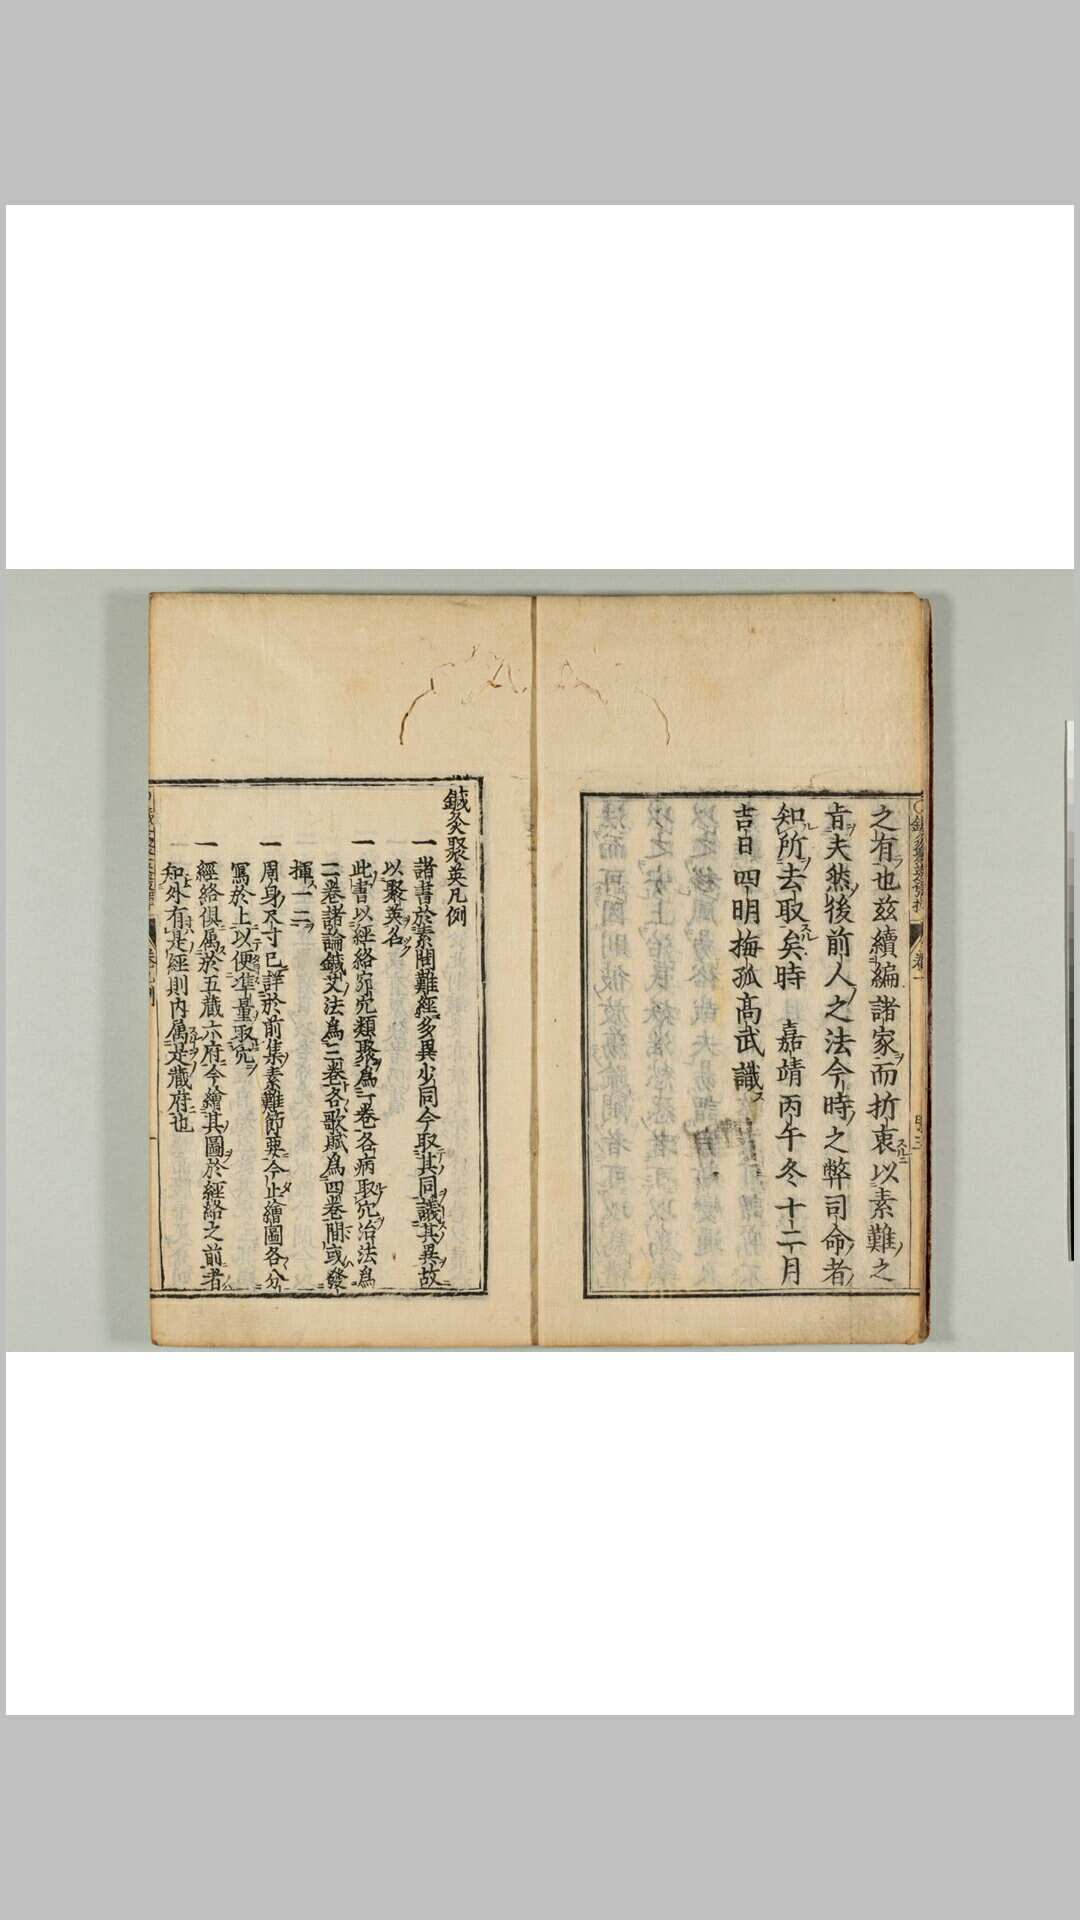 之有也兹續編諸家而折衷以素難之
旨夫然後前人之法今時之弊司命者
知所去取矣時　嘉靖丙午冬十二月
吉日四明梅孤高武識
鍼灸聚英凡例
一諸書於素問難經多異少同今取其同議其異故
以聚英名
一此書以經絡穴類聚爲一卷各病取穴治法爲
二卷諸論鍼艾法爲三卷各歌賦爲四卷間或發
揮一二
一周身尺寸已詳於前集素難節要今止繪圖各分
寫於上以便准量取穴
一經絡俱属於五藏六府今繪其圖於經絡之前者
知外有是經則内属是藏府也